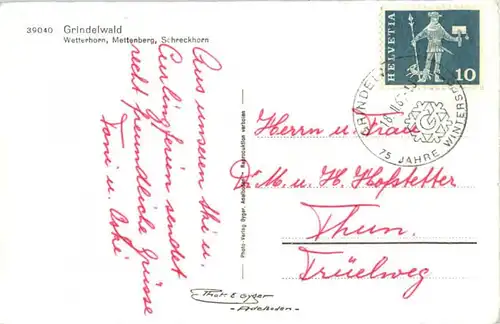 39040 Grindelwald
Wetterhorn, Mettenberg, Schreckhorn
Aus unseren Ski u.
Curlingferien sendet
recht freundliche Grüsse
Toni u.
HELVETIA
10
75 JAHRE WINTERSPORT
Herrn u. Frau
Dr. M. u. H. Hofstetter
Thun.
Trüelweg
Photo-Verlag Gyger, Adelboden - Reproduktion verboten
Phot. E Gyger
Adelboden